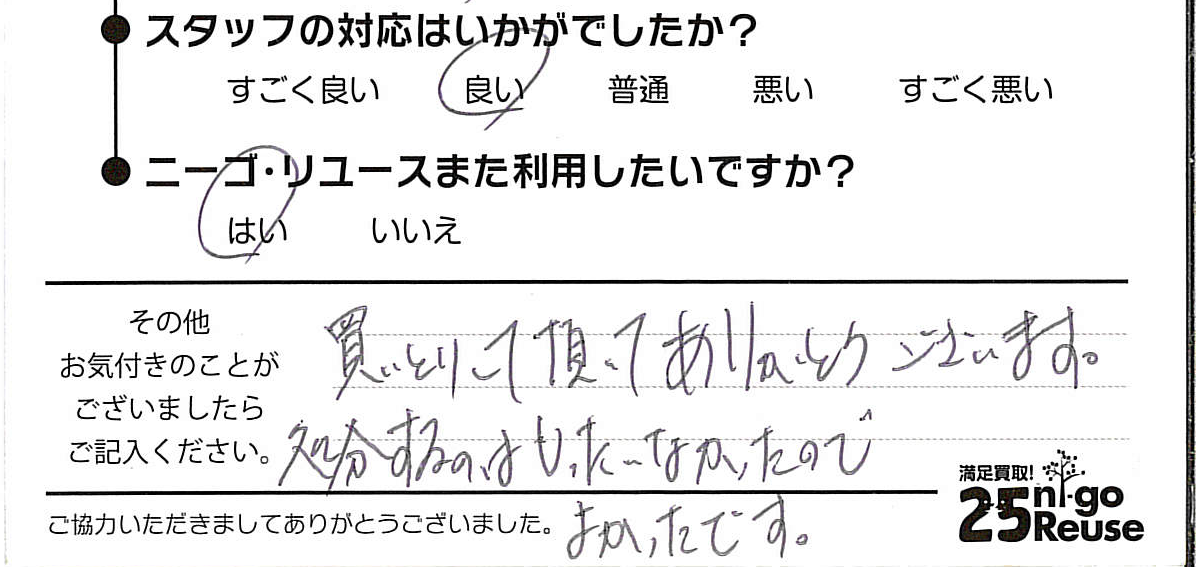 スタッフの対応はいかがでしたか？
すごく良い 良い 普通 悪い すごく悪い
ニーゴ・リユースまた利用したいですか？
はい いいえ
その他
お気付きのことが
ございましたら
ご記入ください。
買いとりして頂いてありがとうございます。
処分するのはもったいなかったので
よかったです。
ご協力いただきましてありがとうございました。
満足買取!
25 ni-go
Reuse